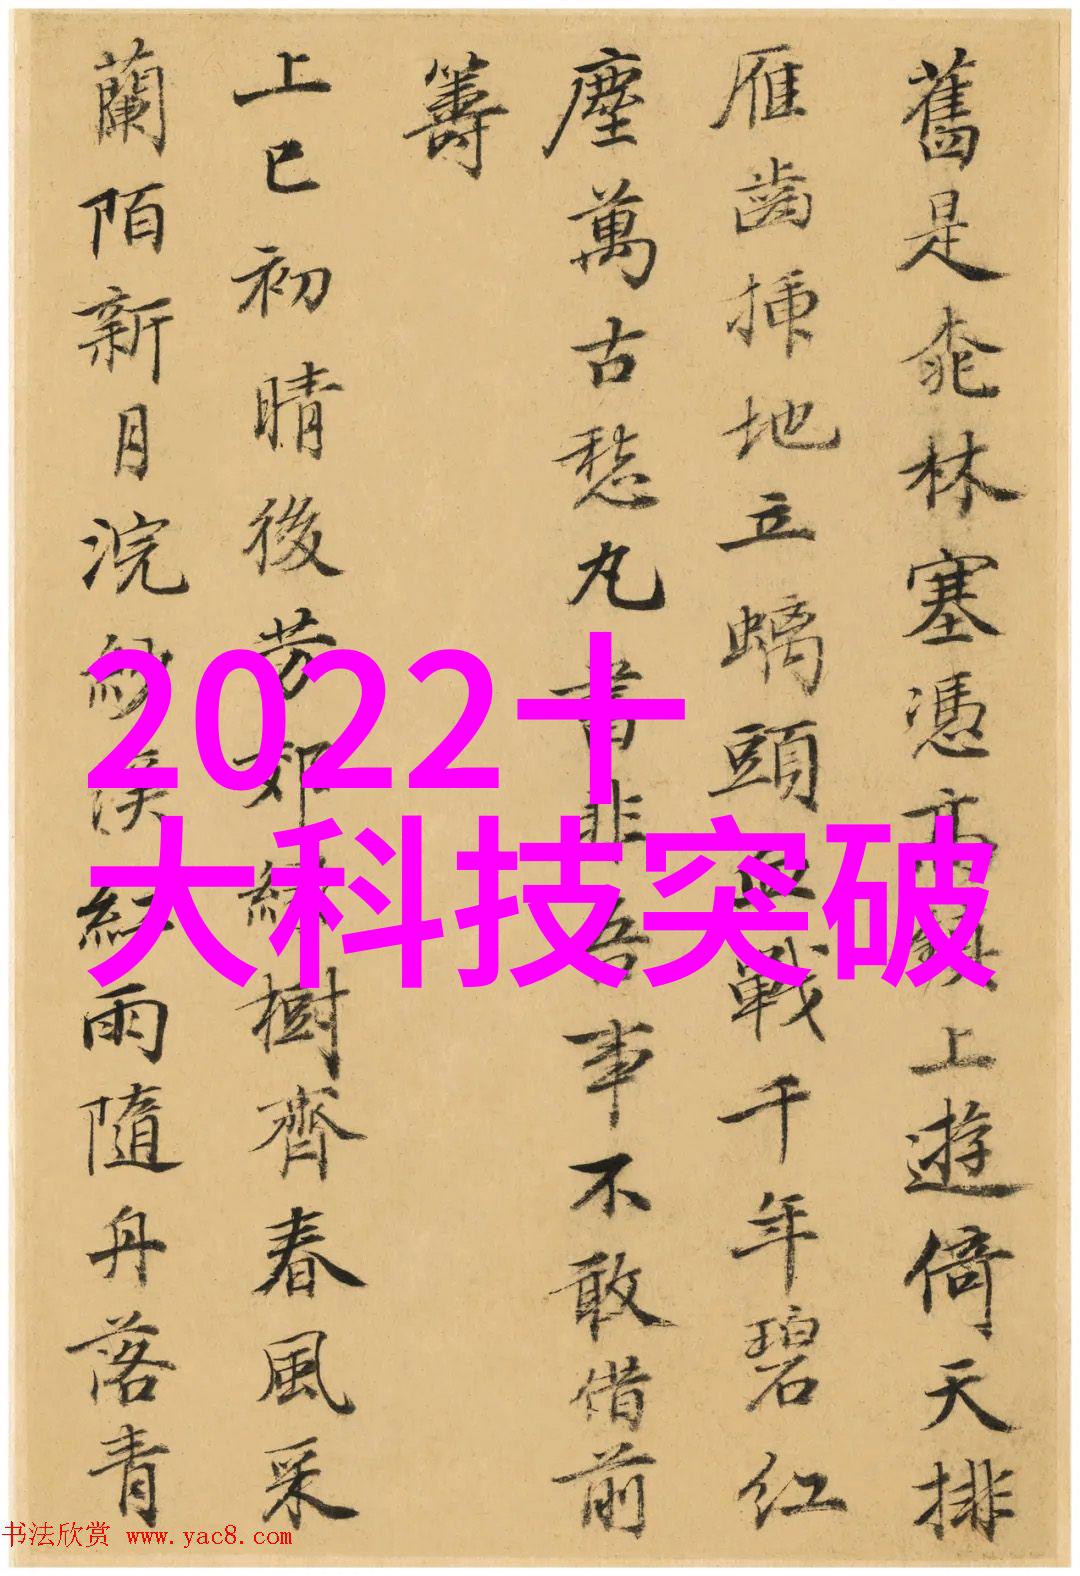 舊是桃林塞憑高上遊倚天排
雁齒插地立螭頭血戰千年碧紅
塵萬古愁丸書非吾事不敢借前
籌
上巳初晴後芳郊綠樹齊春風采
蘭陌新月浣紗溪紅雨隨舟落青
2022十
大科技突破
书法欣赏 www.yac8.com